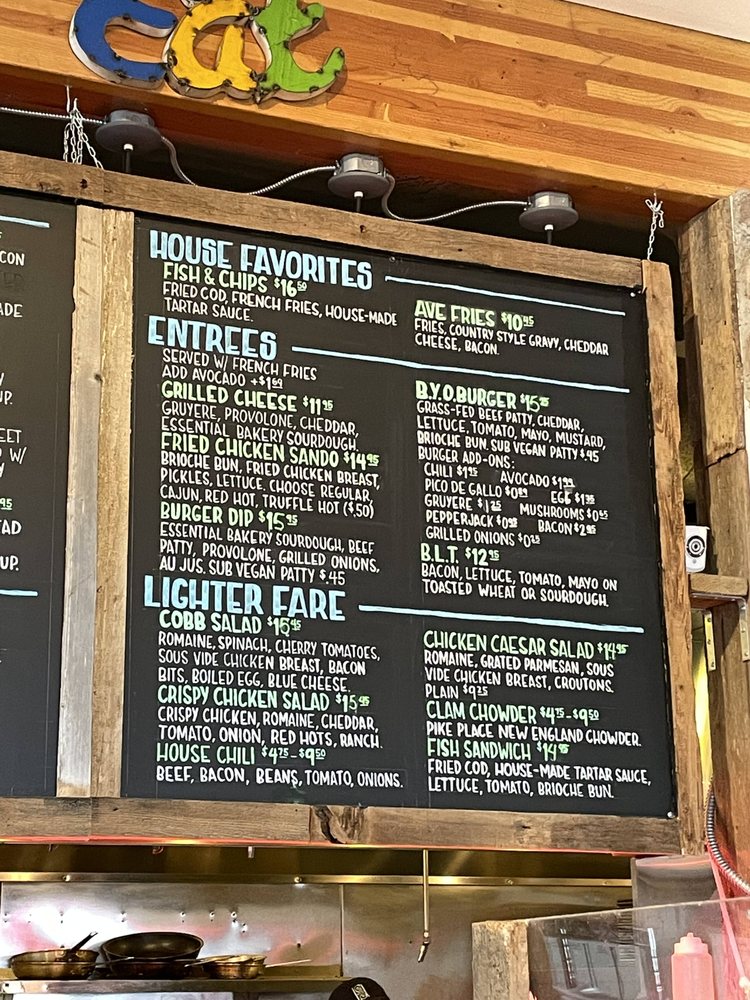 eat
CON
ADE
UP.
EET
W/
95
AD
UP.
HOUSE FAVORITES
FISH & CHIPS $16.50
FRIED COD, FRENCH FRIES, HOUSE-MADE
TARTAR SAUCE.
AVE FRIES $10.45
FRIES, COUNTRY STYLE GRAVY, CHEDDAR
CHEESE, BACON.
ENTREES
SERVED W/ FRENCH FRIES
ADD AVOCADO +$1.99
GRILLED CHEESE $11.95
GRUYERE, PROVOLONE, CHEDDAR,
ESSENTIAL BAKERY SOURDOUGH.
FRIED CHICKEN SANDO $14.95
BRIOCHE BUN, FRIED CHICKEN BREAST,
PICKLES, LETTUCE. CHOOSE REGULAR,
CAJUN, RED HOT, TRUFFLE HOT ($.50)
BURGER DIP $15.95
ESSENTIAL BAKERY SOURDOUGH, BEEF
PATTY, PROVOLONE, GRILLED ONIONS,
AU JUS. SUB VEGAN PATTY $.45
B.Y.O.BURGER
GRASS-FED BEEF PATTY, CHEDDAR,
LETTUCE, TOMATO, MAYO, MUSTARD,
BRIOCHE BUN. SUB VEGAN PATTY $.95
BURGER ADD-ONS:
CHILI $1.95 AVOCADO $1.99
PICO DE GALLO EGG
GRUYERE $1.25 MUSHROOMS
PEPPERJACK BACON $2.95
GRILLED ONIONS
B.L.T. $12.95
BACON, LETTUCE, TOMATO, MAYO ON
TOASTED WHEAT OR SOURDOUGH.
LIGHTER FARE
COBB SALAD
ROMAINE, SPINACH, CHERRY TOMATOES,
SOUS VIDE CHICKEN BREAST, BACON
BITS, BOILED EGG, BLUE CHEESE.
CRISPY CHICKEN SALAD $15.95
CRISPY CHICKEN, ROMAINE, CHEDDAR,
TOMATO, ONION, RED HOTS, RANCH.
HOUSE CHILI $4.75-$9.50
BEEF, BACON, BEANS, TOMATO, ONIONS.
CHICKEN CAESAR SALAD $14.95
ROMAINE, GRATED PARMESAN, SOUS
VIDE CHICKEN BREAST, CROUTONS.
PLAIN $9.25
CLAM CHOWDER $4.75-$9.50
PIKE PLACE NEW ENGLAND CHOWDER.
FISH SANDWICH $14.95
FRIED COD, HOUSE-MADE TARTAR SAUCE,
LETTUCE, TOMATO, BRIOCHE BUN.